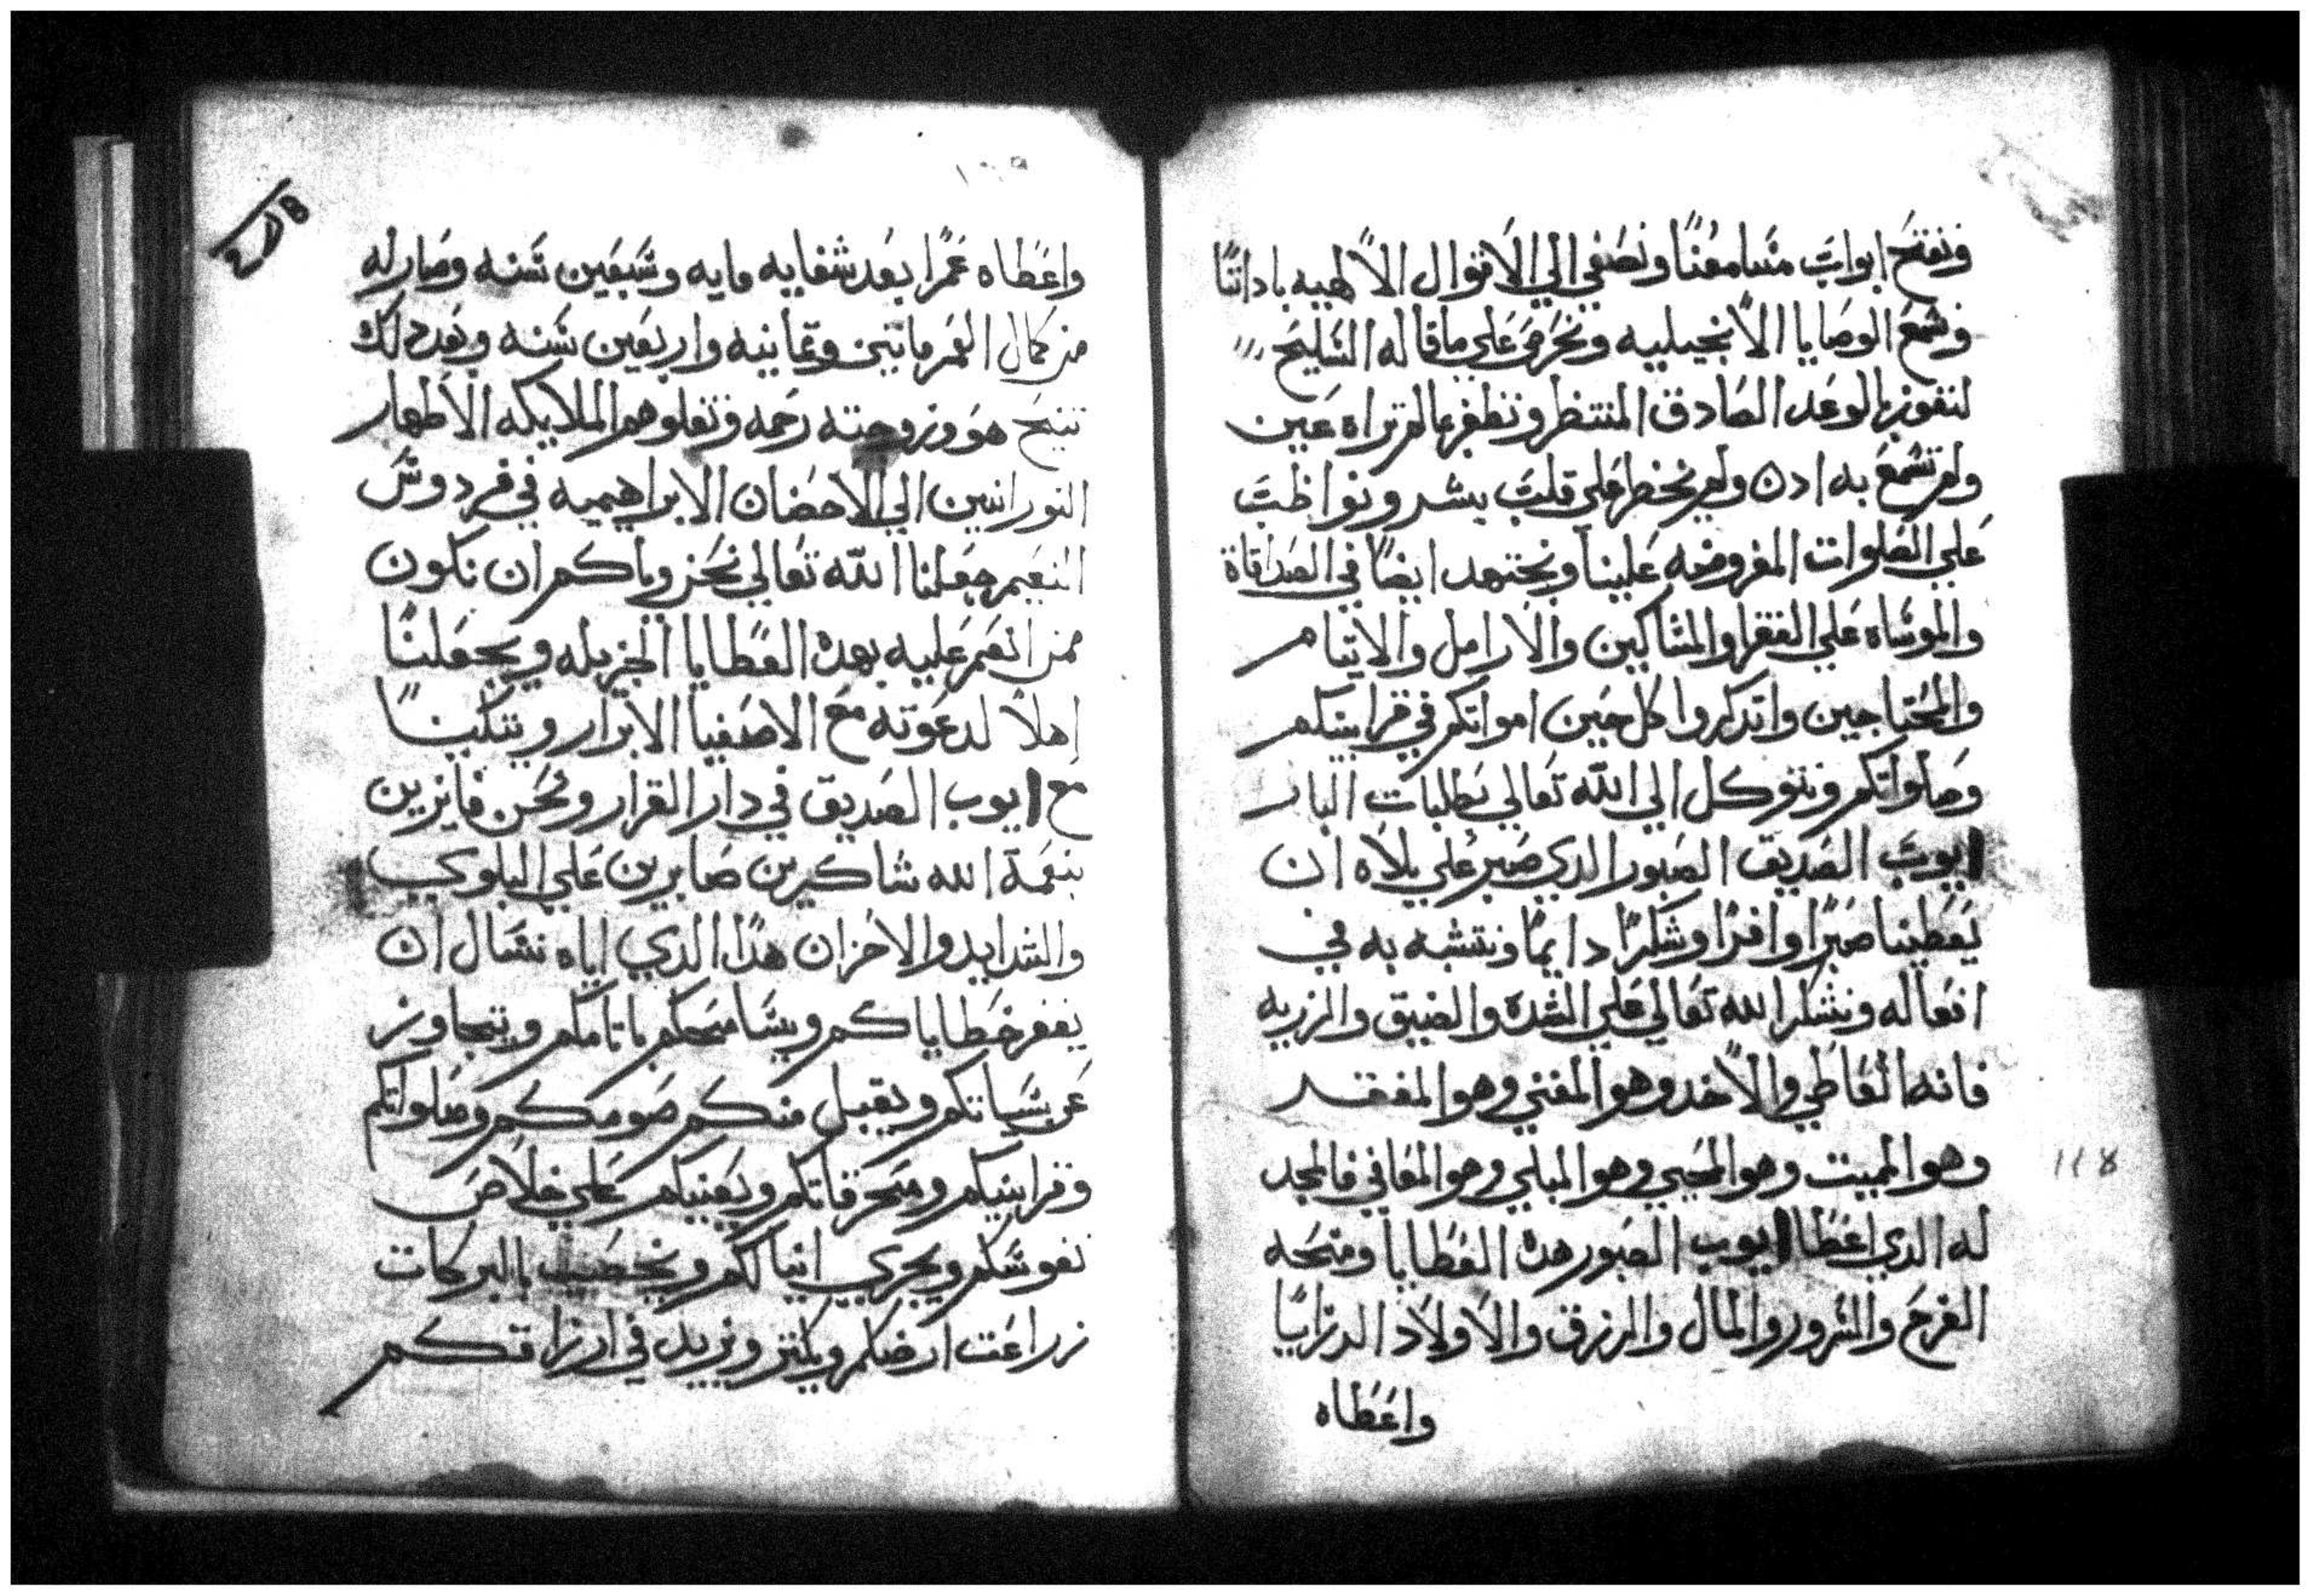 ونفتح ابواب مسامعنا ونصغي الي الاقوال الالهيه باداننا
ونسمع الوصايا الانجيليه ونحرص علي ما قاله السليح
لنفوز بالوعد الصادق المنتظر ونظفر بمالم تراه عين
ولم تسمع به ادن ولم يخطر علي قلب بشر ونواظب
علي الصلوات المفروضه علينا ونجتهد ايضا في الصداقاة
والموساه علي الفقرا والمساكين والارامل والايتام
والمحتاجين واتدكروا كل حين امواتكم في قرابينكم
وصلواتكم ونتوكل الي الله تعالي بطلبات البار
ايوب الصديق الصبور الدي صبر علي بلاه ان
يعطينا صبرا وافرا وشكرا دايما ونتشبه به في
افعاله ونشكر الله تعالي علي الشده والضيق والرزيه
فانه العاطي والاخد وهو المغني وهو المفقر
وهو المميت وهو المحيي وهو المبلي وهو المعافي فالمجد
له الدي اعطا ايوب الصبور هده العطايا ومنحه
الفرح والسرور والمال والرزق والاولاد الدرايا
واعطاه
١١٨
واعطاه عمرا بعد شفايه مايه وسبعين سنه وصار له
من كمال العمر مايتين وتمانيه واربعين سنه وبعد دلك
تنيح هو وزوجته رحمه وتعلوهم الملايكه الاطهار
النورانيين الي الاحضان الابراهيميه في فردوس
النعيم جعلنا الله تعالي نحن واياكم ان نكون
ممن انعم عليه بهده العطايا الجزيله ويجعلنا
اهلا لدعوته مع الاصفيا الابرار ويسكننا
مع ايوب الصديق في دار القرار ونحن فايزين
بنعمة الله شاكرين صابرين علي البلوي
والشدايد والاحزان هدا الدي اياه نسال ان
يغفر خطاياكم ويسامحكم باتامكم ويتجاوز
عن سياتكم ويقبل منكم صومكم وصلواتكم
وقرابينكم ومحرقاتكم ويعينكم علي خلاص
نفوسكم ويجري انيالكم ويخصب بالبركات
زراعت ارضكم ويكتر ويزيد في ارزاقكم